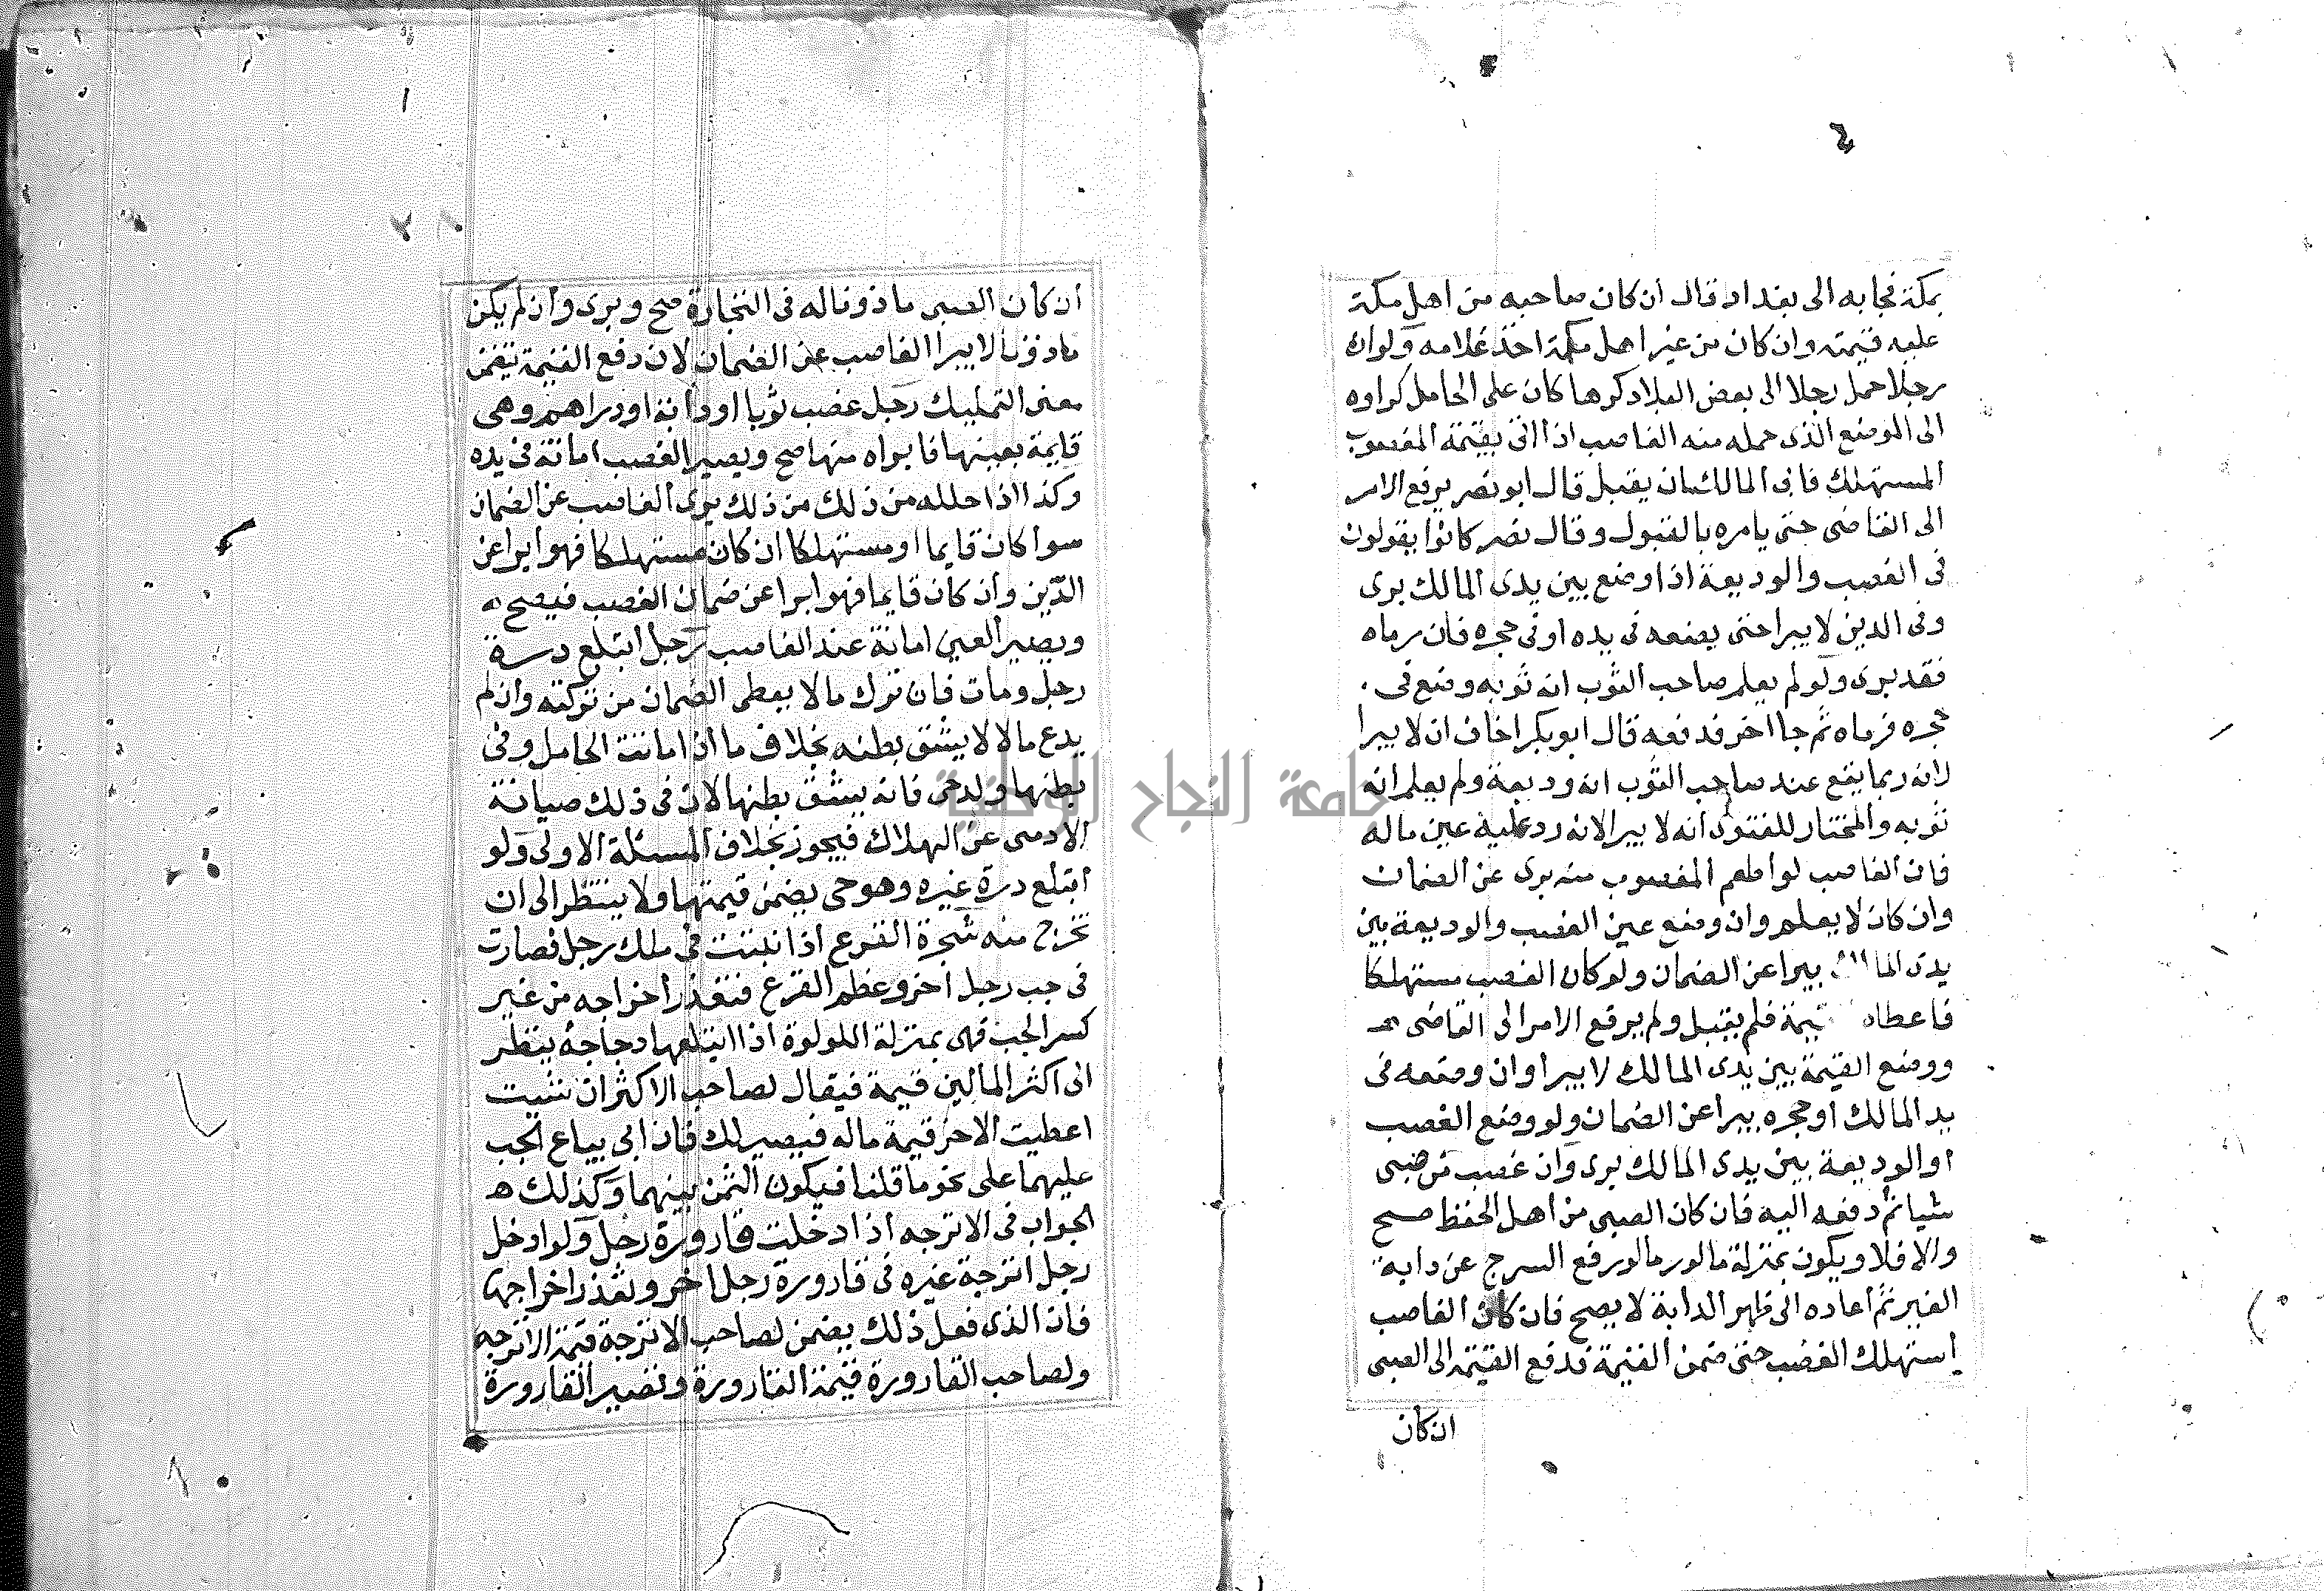 بمكة فجا به الى بغداد قال ان كان صاحبه من اهل مكة
عليه قيمته وان كان من غير اهل مكة اخذ غلامه ولوان
رجلا حمل رجلا الى بعض البلاد كرها كان على الحامل كراوه
الى الموضع الذى حمله منه الغاصب اذا اتى بقيمة المغصوب
المستهلك فابى المالك ان يقبل قال ابو نصر يرفع الامر
الى القاضى حتى يامره بالقبول وقال نصر كانوا يقولون
فى الغصب والوديعة اذا وضع بين يدى المالك برى
وفى الدين لا يبرا حتى يضعه فى يده او فى حجره فان رماه
فقد برى ولو لم يعلم صاحب الثوب انه ثوبه وضع فى
حجره فرماه ثم جا اخر فدفعه قال ابو بكر اخاف ان لا يبرا
لانه ربما يقع عند صاحب الثوب انه وديعة ولم يعلم انه
ثوبه والمختار للفتوى انه لا يبرا لانه رد عليه عين ماله
فان الغاصب لو اطعم المغصوب منه برى عن الضمان
وان كان لا يعلم وان وضع عين الغصب والوديعة بين
يدى يبرا عن الضمان ولو كان الغصب مستهلكا
فاعطاه فلم يقبل ولم يرفع الامر الى القاضى
ووضع القيمة بين يدى المالك لا يبرا وان وضعه فى
يد المالك او حجره يبرا عن الضمان ولو وضع الغصب
او الوديعة بين يدى المالك برى وان غصب من صبى
شيا ثم دفعه اليه فان كان الصبى من اهل الحفظ صح
والا فلا ويكون بمنزلة مالو رفع السرج عن دابة
الغير ثم اعاده الى ظهر الدابة لا يصح فان كان الغاصب
استهلك الغصب حتى ضمن القيمة فدفع القيمة الى الصبى
ان كان
ان كان الصبى ماذونا له فى التجارة صح وبرى وان لم يكن
ماذونا لا يبرا الغاصب عن الضمان لان دفع القيمة تضمن
معنى التمليك رجل غصب ثوبا او دابة او دراهم وهى
قايمة بعينها فابراه منها صح ويصير الغصب امانة فى يده
وكذا اذا حلله من ذلك من ذلك يبرى الغاصب عن الضمان
سوا كان قايما او مستهلكا ان كان مستهلكا فهو ابرا عن
الدين وان كان قايما فهو ابرا عن ضمان الغصب فيصح
ويصير العين امانة عند الغاصب رجل ابتلع درة
رجل ومات فان ترك مالا يعطى الضمان من تركته وان لم
يدع مالا لا يشق بطنه بخلاف ما اذا ماتت الحامل وفى
بطنها ولد حى فانه يشق بطنها لان فى ذلك صيانة
الادمى عن الهلاك فيجوز بخلاف المسئلة الاولى ولو
ابتلع درة غيره وهو حى يضمن قيمتها ولا ينتظر الى ان
تخرج منه شجرة القرع اذا نبتت فى ملك رجل فصارت
فى جب رجل اخر وعظم القرع فتعذر اخراجه من غير
كسر الجب فهى بمنزلة اللولوة اذا ابتلعها دجاجة ينظر
الى اكثر المالين قيمة فيقال لصاحب الاكثر ان شيت
اعطيت الاخر قيمة ماله فيصير لك فان ابى يباع الجب
عليهما على نحو ما قلنا فيكون الثمن بينهما وكذلك
الجواب فى الاترجه اذا دخلت قارورة رجل ولو ادخل
رجل اترجة غيره فى قارورة رجل اخر وتعذر اخراجها
فان الذى فعل ذلك يضمن لصاحب الاترجة قيمة الاترجه
ولصاحب القارورة قيمة القارورة وتصير القارورة